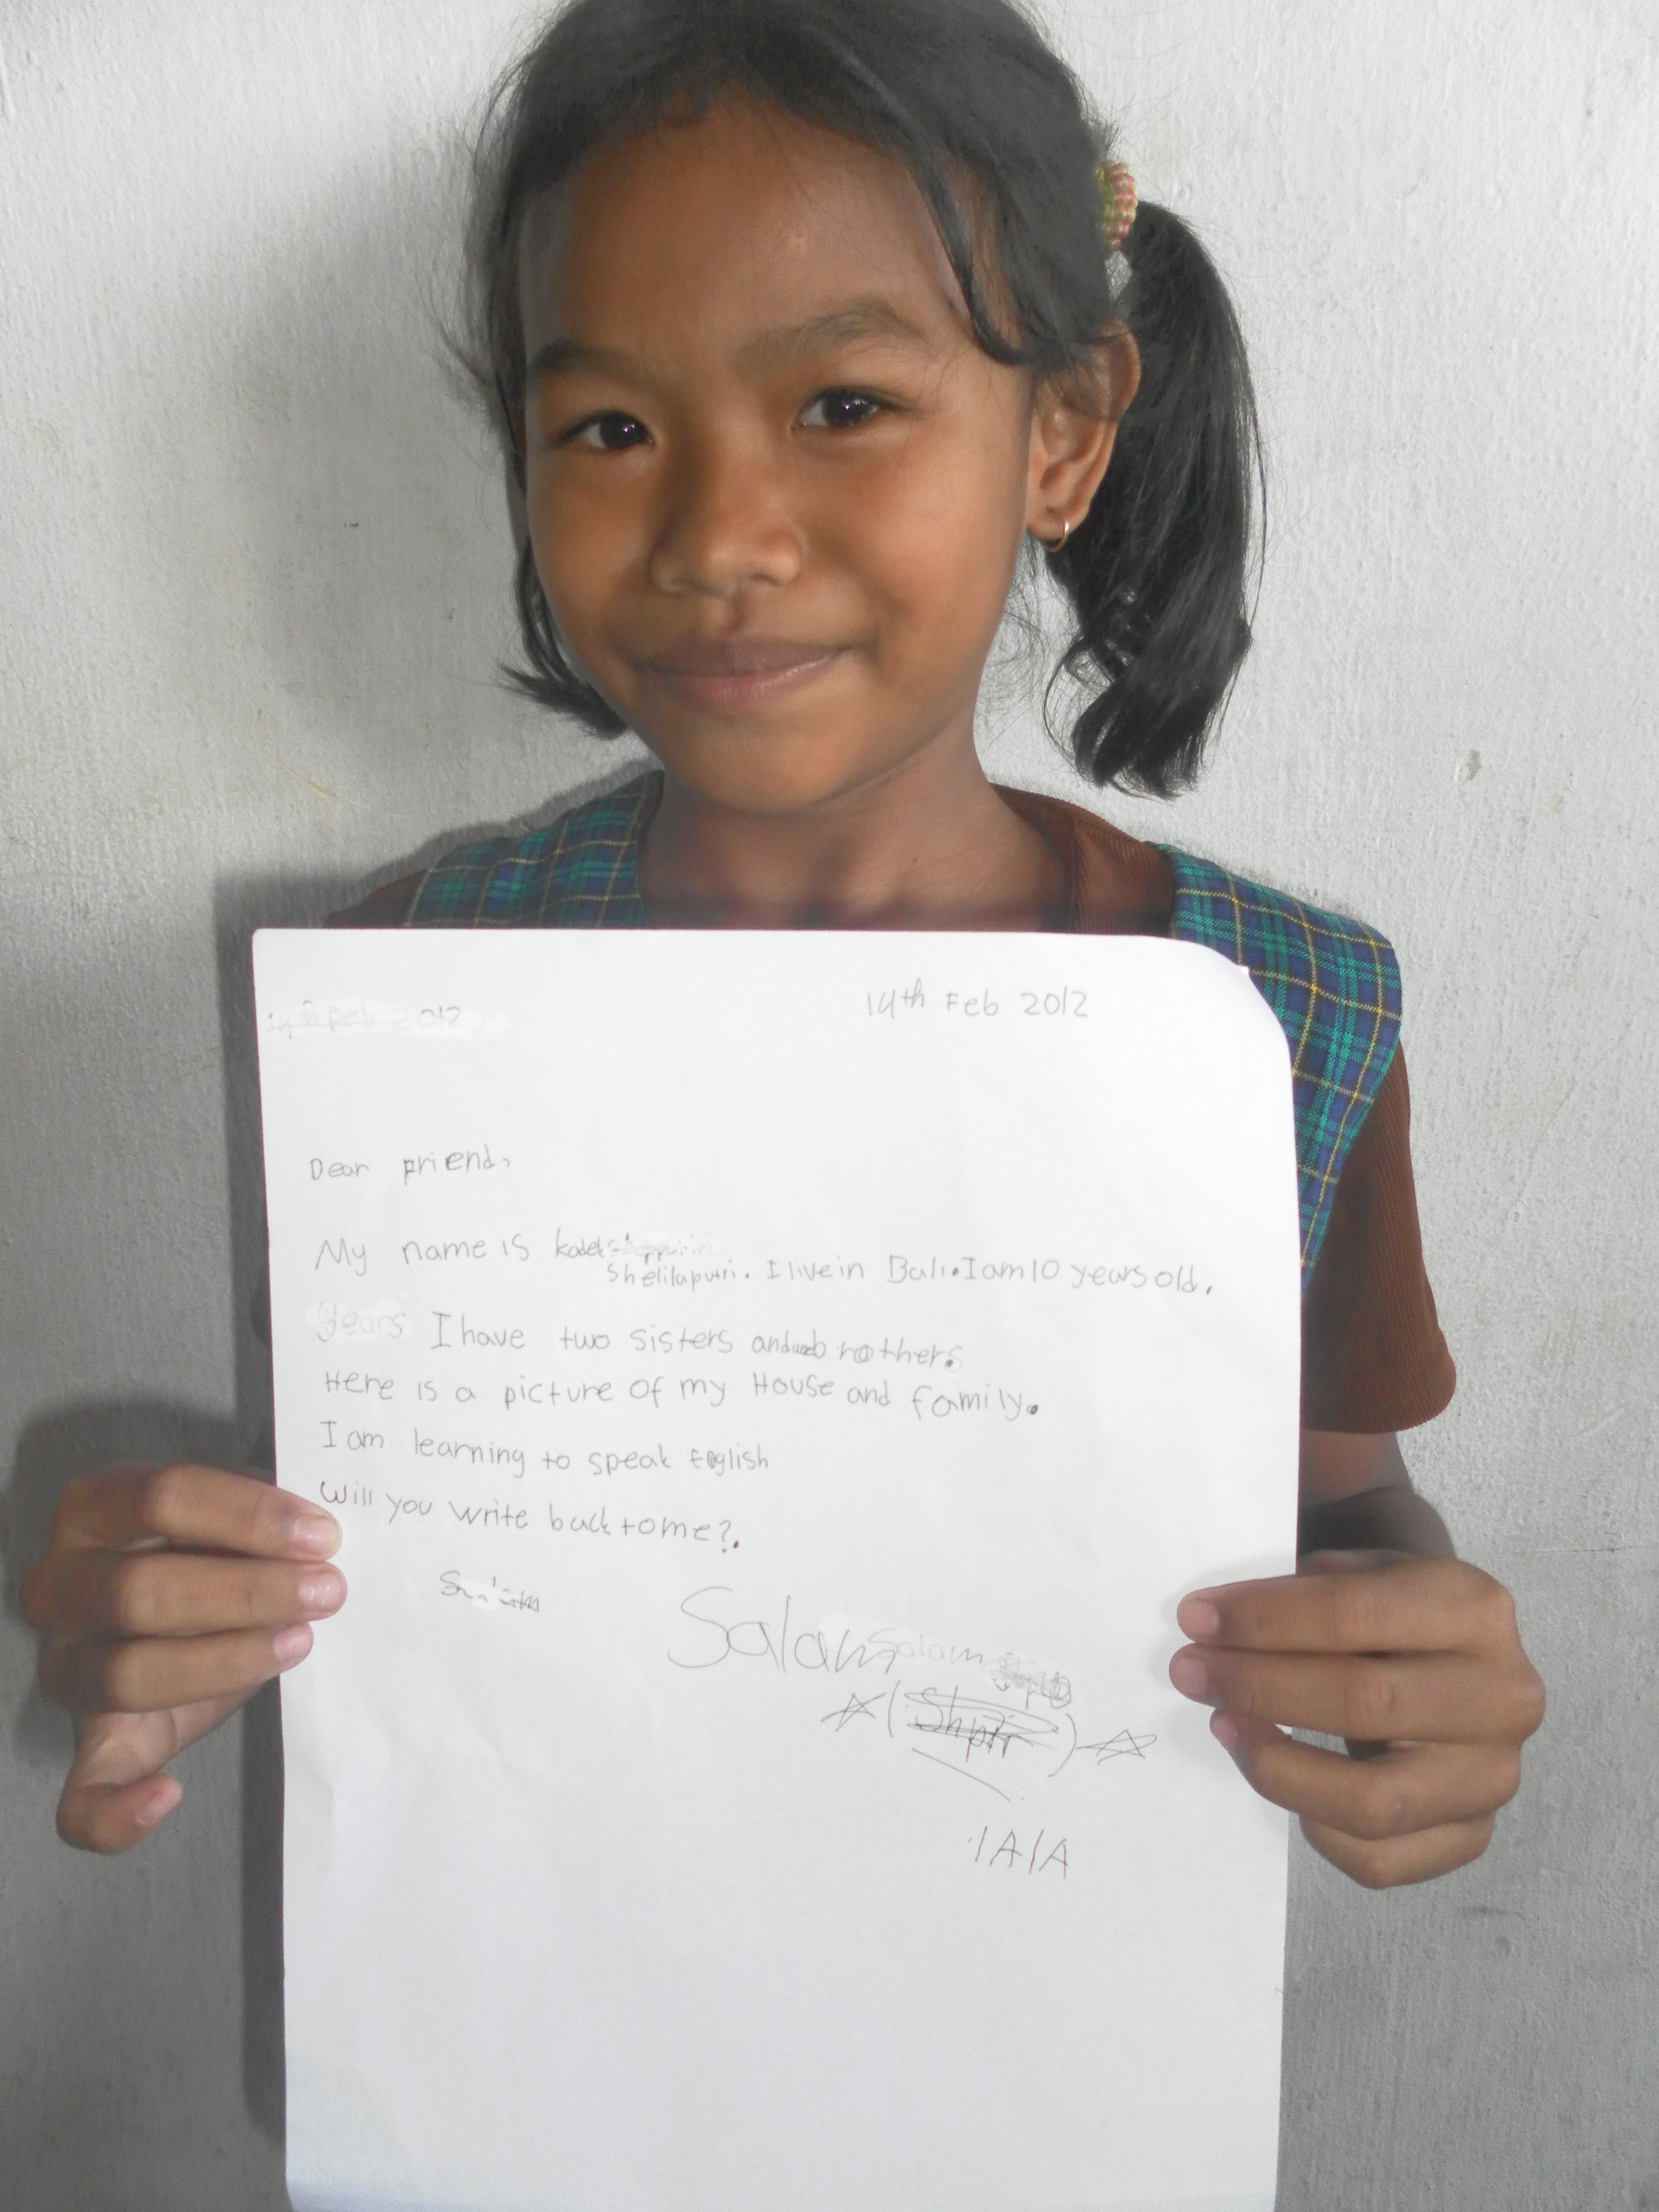 14th Feb 2012
Dear Friend,
My name is kadek
Shelilaputri. I live in Bali. I am 10 years old.
years I have two sisters and brothers.
Here is a picture of my House and family.
I am learning to speak English
Will you write back to me?.
Salam Salam